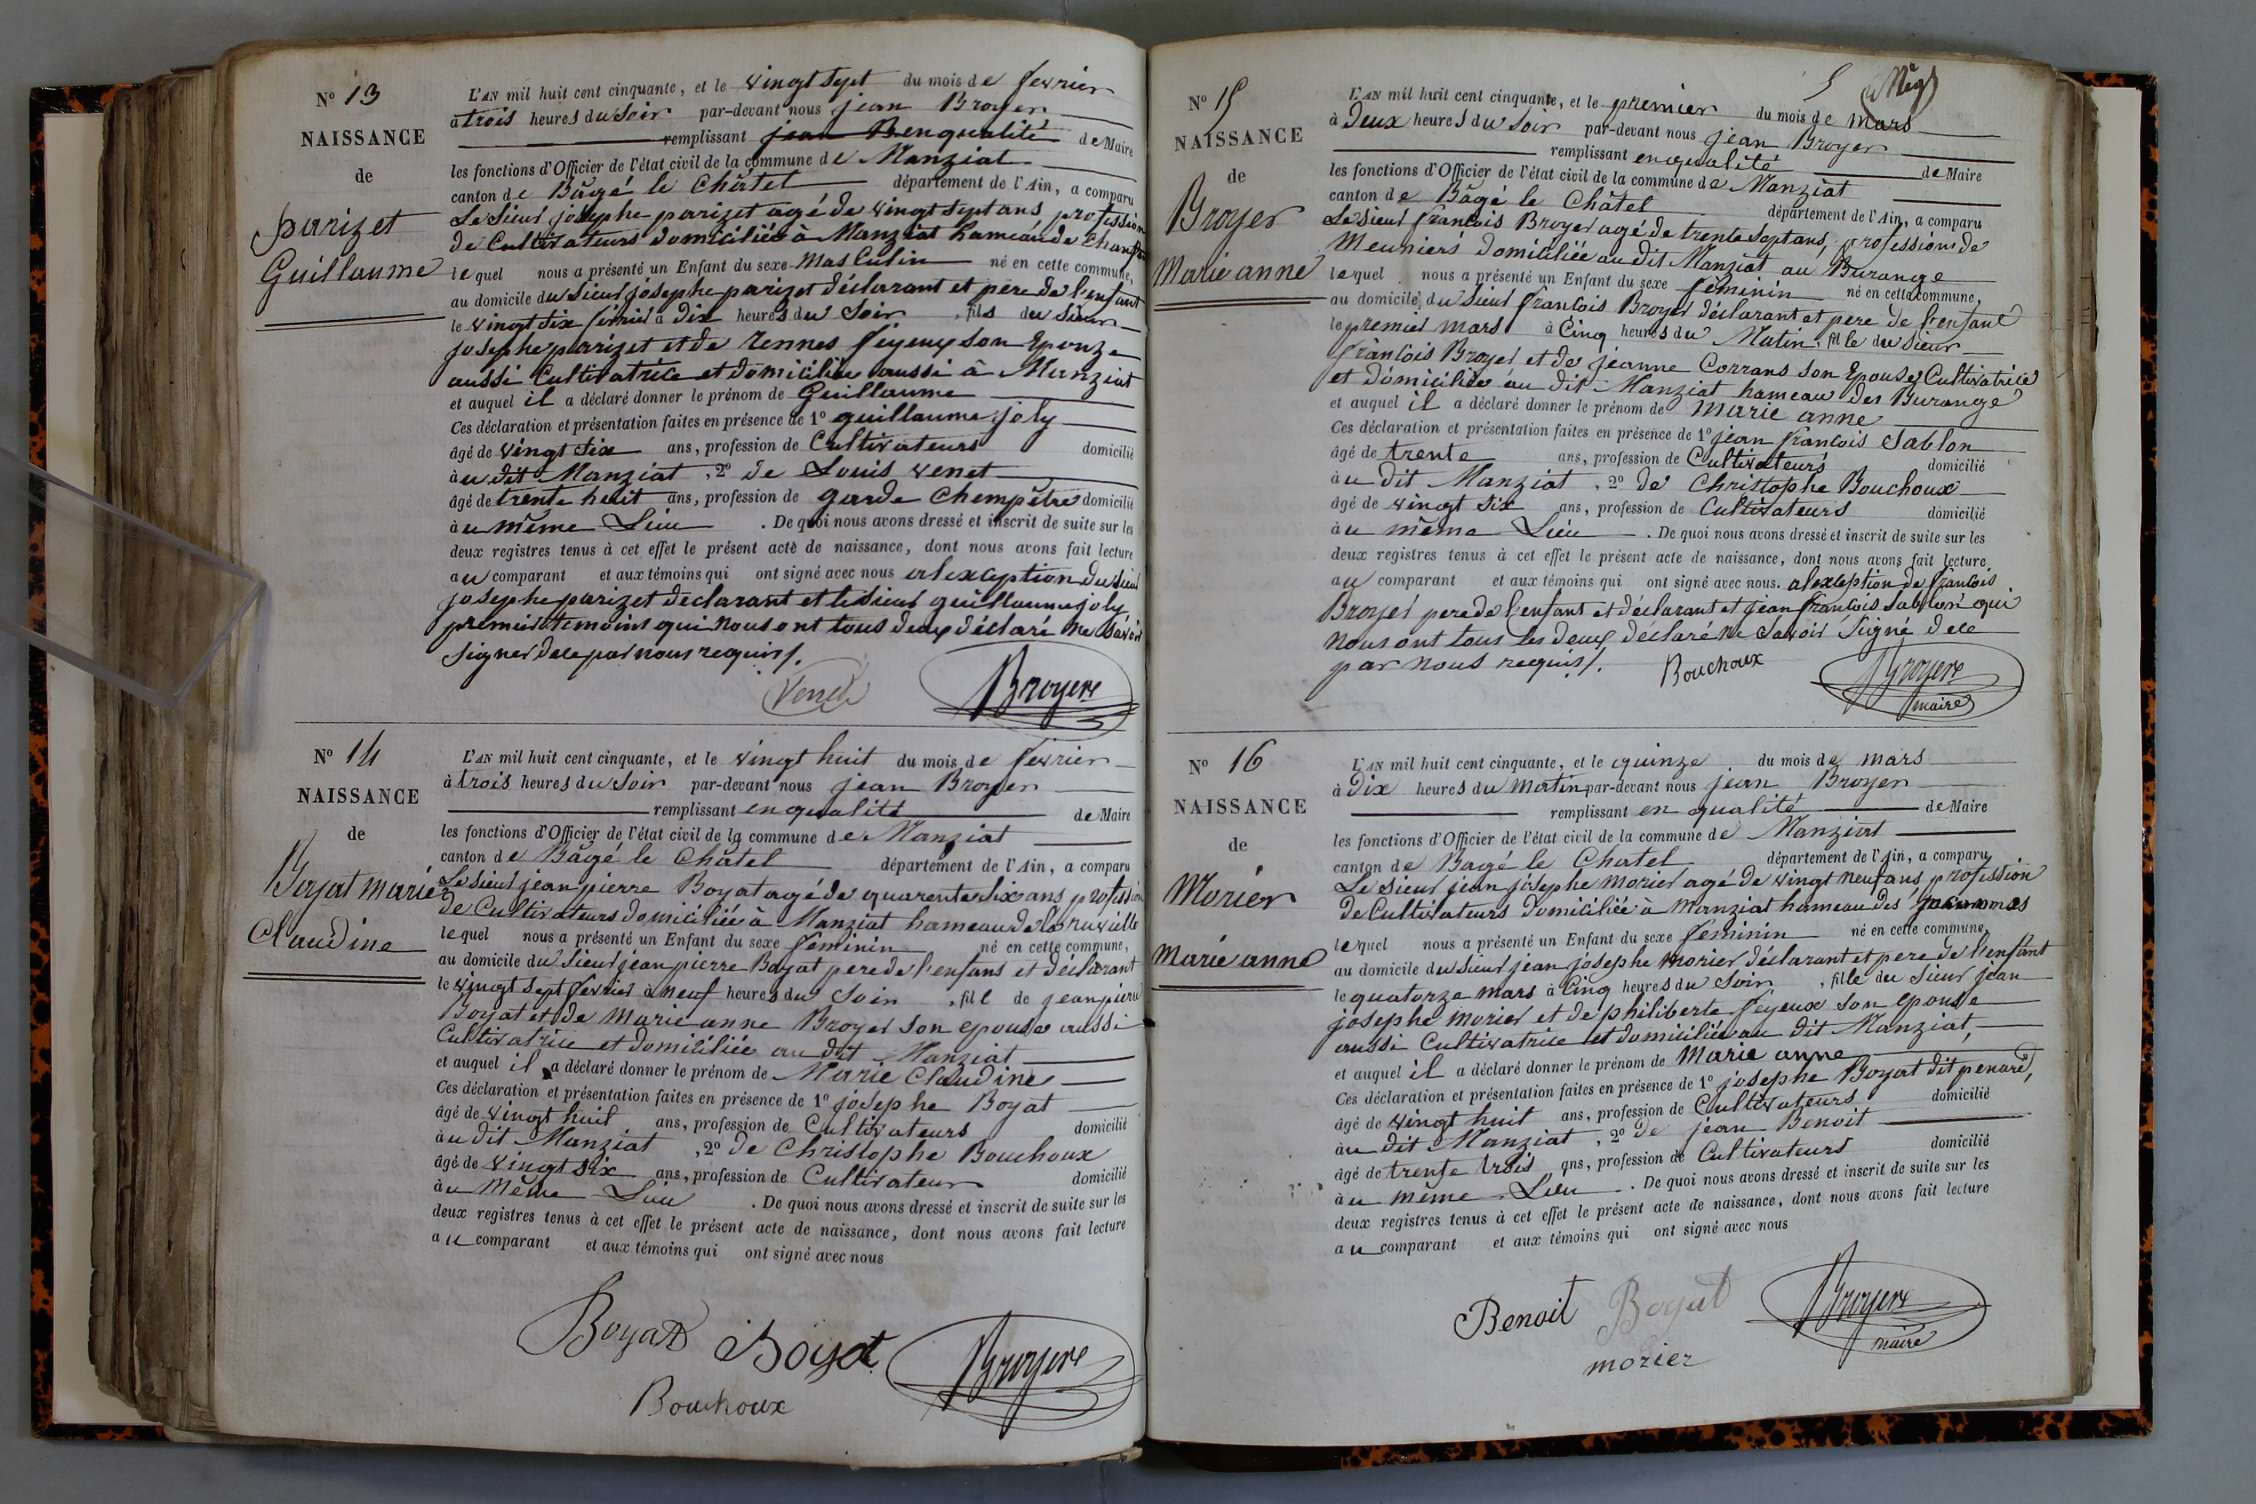 N° 13
NAISSANCE
de
parizet
Guillaume
L'AN mil huit cent cinquante, et le vingt sept du mois de fevrier
à trois heures du soir par-devant nous jean Broyer
remplissant jean Benqualité de Maire
les fonctions d'Officier de l'état civil de la commune de Manziat
canton de Bâgé le Châtel département de l'Ain, a comparu
Le sieur josephe parizet agé de vingt sept ans profession
de Cultivateurs domiciliée à Manziat hameau de
lequel nous a présenté un Enfant du sexe Masculin né en cette commune,
au domicile du sieur josephe parizet déclarant et père de l'enfant
le vingt six févrié à dix heures du soir, fils du sieur
josephe parizet et de rennes feyeux son Epouze
aussi Cultivatrice et domiciliée aussi à Manziat
et auquel il a déclaré donner le prénom de Guillaume
Ces déclaration et présentation faites en présence de 1° guillaume joly
âgé de vingt six ans, profession de Cultivateurs domicilié
à u dit Manziat, 2° de Louis venet
âgé de trente huit ans, profession de garde Chempêtre domicilié
à u même Lieu. De quoi nous avons dressé et inscrit de suite sur les
deux registres tenus à cet effet le présent acte de naissance, dont nous avons fait lecture
au comparant et aux témoins qui ont signé avec nous alexception du sieur
josephe parizet declarant et le sieur guillaume joly
premier temoins qui nous ont tous deux déclaré ne savoir
signer de ce par nous requis /.
Venet Broyere
N° 14
NAISSANCE
de
Boyat marie
Claudine
L'AN mil huit cent cinquante, et le vingt huit du mois de fevrier
à trois heures du soir par-devant nous jean Broyer
remplissant en qualité de Maire
les fonctions d'Officier de l'état civil de la commune de Manziat
canton de Bâgé le Châtel département de l'Ain, a comparu
Le sieur jean pierre Boyat agé de quarente six ans profession
de Cultivateurs domiciliée à Manziat hameau de
lequel nous a présenté un Enfant du sexe feminin né en cette commune,
au domicile du sieur jean pierre Boyat pere de l'enfans et déclarant
le vingt sept fevrier à neuf heures du soir, fille de jean pierre
Boyat et de marie anne Broyer son epouse aussi
Cultivatrice et domiciliée au dit Manziat
et auquel il a déclaré donner le prénom de Marie Claudine
Ces déclaration et présentation faites en présence de 1° josephe Boyat
âgé de vingt huit ans, profession de Cultivateurs domicilié
à u dit Manziat, 2° de Christophe Bouchoux
âgé de vingt six ans, profession de Cultivateur domicilié
à u Même Lieu. De quoi nous avons dressé et inscrit de suite sur les
deux registres tenus à cet effet le présent acte de naissance, dont nous avons fait lecture
au comparant et aux témoins qui ont signé avec nous
Boyat Boyat Broyere
Bouchoux
5
N° 15
NAISSANCE
de
Broyer
Marie anne
L'AN mil huit cent cinquante, et le premier du mois de mars
à deux heures du soir par-devant nous jean Broyer
remplissant en qualité de Maire
les fonctions d'Officier de l'état civil de la commune de Manziat
canton de Bâgé le Châtel département de l'Ain, a comparu
Le sieur francois Broyer agé de trente sept ans, profession de
Meuniers domiciliée au dit Manziat au Burange
lequel nous a présenté un Enfant du sexe féminin né en cette commune,
au domicile du sieur francois Broyer déclarant et pere de l'enfant
le premier mars à Cinq heures du Matin, fille du sieur
francois Broyer et de jeanne Corrans son Epouse Cultivatrice
et domiciliée au dit Manziat hameau des Burange
et auquel il a déclaré donner le prénom de Marie anne
Ces déclaration et présentation faites en présence de 1° jean francois Sablon
âgé de trente ans, profession de Cultivateurs domicilié
à u dit Manziat, 2° de Christophe Bouchoux
âgé de vingt six ans, profession de Cultivateurs domicilié
à u même Lieu. De quoi nous avons dressé et inscrit de suite sur les
deux registres tenus à cet effet le présent acte de naissance, dont nous avons fait lecture
au comparant et aux témoins qui ont signé avec nous. alexception de francois
Broyer pere de l'enfant et déclarant et jean francois Sablon qui
nous ont tous les deux déclaré ne savoir signé de ce
par nous requis /. Bouchoux Broyere
maire
N° 16
NAISSANCE
de
Morier
Marie anne
L'AN mil huit cent cinquante, et le quinze du mois de mars
à Dix heures du matin par-devant nous jean Broyer
remplissant en qualité de Maire
les fonctions d'Officier de l'état civil de la commune de Manziat
canton de Bagé le Chatel département de l'Ain, a comparu
Le sieur jean josephe morier agé de vingt neuf ans profession
de Cultivateurs domiciliée à Manziat hameau des
lequel nous a présenté un Enfant du sexe feminin né en cette commune,
au domicile du sieur jean josephe Morier déclarant et pere de l'enfant
le quatorze mars à Cinq heures du soir, fille du sieur jean
josephe morier et de philiberte feyeux son epouse
aussi Cultivatrice et domiciliée au dit Manziat,
et auquel il a déclaré donner le prénom de Marie anne
Ces déclaration et présentation faites en présence de 1° josephe Boyat dit penard,
âgé de vingt huit ans, profession de Cultivateurs domicilié
à u dit Manziat, 2° de jean Benoit
âgé de trente trois ans, profession de Cultivateurs domicilié
à u même Lieu. De quoi nous avons dressé et inscrit de suite sur les
deux registres tenus à cet effet le présent acte de naissance, dont nous avons fait lecture
au comparant et aux témoins qui ont signé avec nous
Benoit Boyat Broyere
morier maire